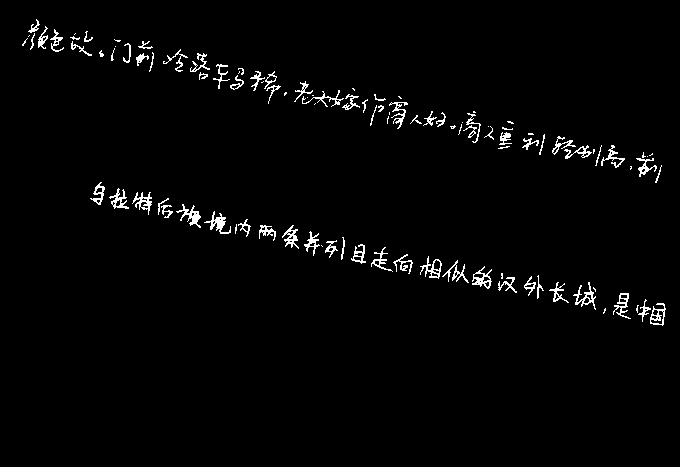 颜色故。门前冷落车马稀，老大嫁作商人妇。商人重利轻别离，前
乌拉特后旗境内两条并列且走向相似的汉外长城，是中国